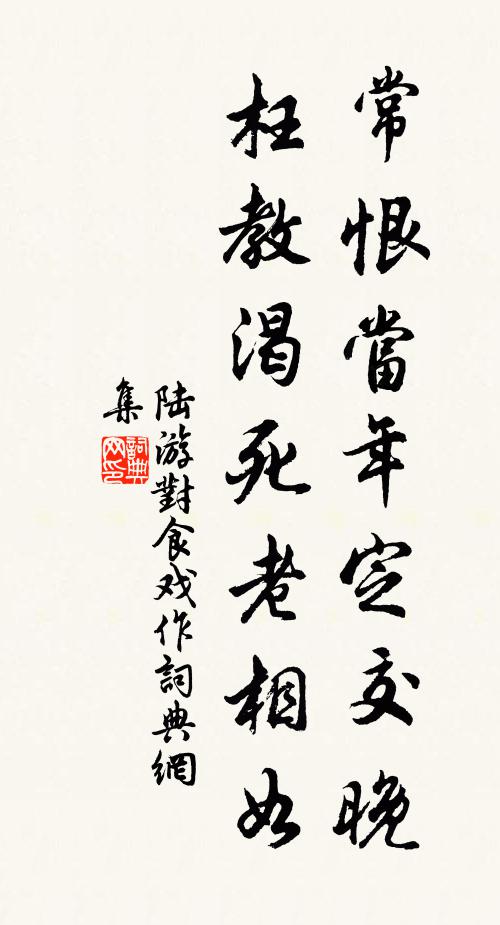 常恨當年定交晚
枉教渴死老相如
陆游對食戏作詞典網
集
詞典網印